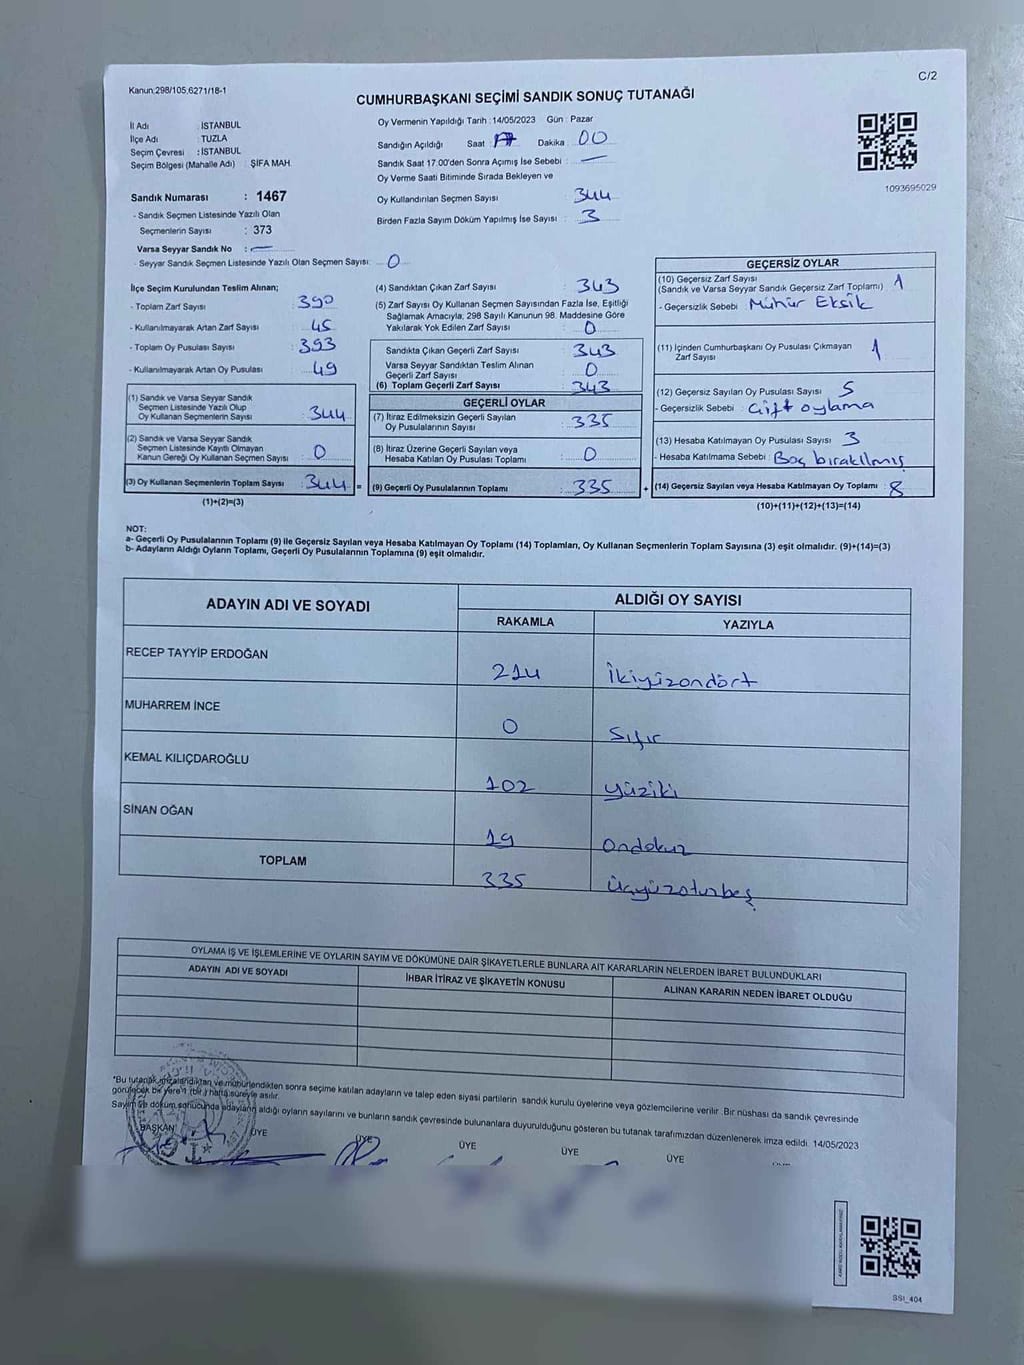 C/2
Kanun:298/105,6271/18-1
CUMHURBAŞKANI SEÇİMİ SANDIK SONUÇ TUTANAĞI
İl Adı : İSTANBUL
İlçe Adı : TUZLA
Seçim Çevresi : İSTANBUL
Seçim Bölgesi (Mahalle Adı) : ŞİFA MAH.
Sandık Numarası : 1467
- Sandık Seçmen Listesinde Yazılı Olan
Seçmenlerin Sayısı : 373
Varsa Seyyar Sandık No : —
- Seyyar Sandık Seçmen Listesinde Yazılı Olan Seçmen Sayısı: 0
Oy Vermenin Yapıldığı Tarih :14/05/2023 Gün : Pazar
Sandığın Açıldığı Saat : Dakika : 00
Sandık Saat 17.00'den Sonra Açımış İse Sebebi : —
Oy Verme Saati Bitiminde Sırada Bekleyen ve
Oy Kullandırılan Seçmen Sayısı : 344
Birden Fazla Sayım Döküm Yapılmış İse Sayısı : 3
1093695029
İlçe Seçim Kurulundan Teslim Alınan;
- Toplam Zarf Sayısı : 390
- Kullanılmayarak Artan Zarf Sayısı : 45
- Toplam Oy Pusulası Sayısı : 393
- Kullanılmayarak Artan Oy Pusulası : 49
(1) Sandık ve Varsa Seyyar Sandık
Seçmen Listesinde Yazılı Olup
Oy Kullanan Seçmenlerin Sayısı : 344
(2) Sandık ve Varsa Seyyar Sandık
Seçmen Listesinde Kayıtlı Olmayan
Kanun Gereği Oy Kullanan Seçmen Sayısı : 0
(3) Oy Kullanan Seçmenlerin Toplam Sayısı : 344 =
(1)+(2)=(3)
(4) Sandıktan Çıkan Zarf Sayısı : 343
(5) Zarf Sayısı Oy Kullanan Seçmen Sayısından Fazla İse, Eşitliği
Sağlamak Amacıyla, 298 Sayılı Kanunun 98. Maddesine Göre
Yakılarak Yok Edilen Zarf Sayısı : 0
Sandıkta Çıkan Geçerli Zarf Sayısı : 343
Varsa Seyyar Sandıktan Teslim Alınan
Geçerli Zarf Sayısı : 0
(6) Toplam Geçerli Zarf Sayısı : 343
GEÇERLİ OYLAR
(7) İtiraz Edilmeksizin Geçerli Sayılan
Oy Pusulalarının Sayısı : 335
(8) İtiraz Üzerine Geçerli Sayılan veya
Hesaba Katılan Oy Pusulası Toplamı : 0
(9) Geçerli Oy Pusulalarının Toplamı : 335 +
GEÇERSİZ OYLAR
(10) Geçersiz Zarf Sayısı
(Sandık ve Varsa Seyyar Sandık Geçersiz Zarf Toplamı) : 1
- Geçersizlik Sebebi : Mühür Eksik
(11) İçinden Cumhurbaşkanı Oy Pusulası Çıkmayan
Zarf Sayısı : 1
(12) Geçersiz Sayılan Oy Pusulası Sayısı : 5
- Geçersizlik Sebebi : Çift oylama
(13) Hesaba Katılmayan Oy Pusulası Sayısı : 3
- Hesaba Katılmama Sebebi : Boş bırakılmış
(14) Geçersiz Sayılan veya Hesaba Katılmayan Oy Toplamı : 8
(10)+(11)+(12)+(13)=(14)
NOT:
a- Geçerli Oy Pusulalarının Toplamı (9) ile Geçersiz Sayılan veya Hesaba Katılmayan Oy Toplamı (14) Toplamları, Oy Kullanan Seçmenlerin Toplam Sayısına (3) eşit olmalıdır. (9)+(14)=(3)
b- Adayların Aldığı Oyların Toplamı, Geçerli Oy Pusulalarının Toplamına (9) eşit olmalıdır.
ADAYIN ADI VE SOYADI
ALDIĞI OY SAYISI
RAKAMLA YAZIYLA
RECEP TAYYİP ERDOĞAN 214 İkiyüzondört
MUHARREM İNCE 0 Sıfır
KEMAL KILIÇDAROĞLU 102 yüziki
SİNAN OĞAN 19 Ondokuz
TOPLAM 335 üçyüzoturbeş
OYLAMA İŞ VE İŞLEMLERİNE VE OYLARIN SAYIM VE DÖKÜMÜNE DAİR ŞİKAYETLERLE BUNLARA AİT KARARLARIN NELERDEN İBARET BULUNDUKLARI
ADAYIN ADI VE SOYADI İHBAR İTİRAZ VE ŞİKAYETİN KONUSU ALINAN KARARIN NEDEN İBARET OLDUĞU
"Bu tutanak imzalandıktan ve mühürlendikten sonra seçime katılan adayların ve talep eden siyasi partilerin sandık kurulu üyelerine veya gözlemcilerine verilir .Bir nüshası da sandık çevresinde
görülecek bir yere 1 (bir ) hafta süreyle asılır.
Sayım ve döküm sonucunda adayların aldığı oyların sayılarını ve bunların sandık çevresinde bulunanlara duyurulduğunu gösteren bu tutanak tarafımızdan düzenlenerek imza edildi. 14/05/2023
BAŞKAN ÜYE ÜYE ÜYE ÜYE ÜYE
SSI_404